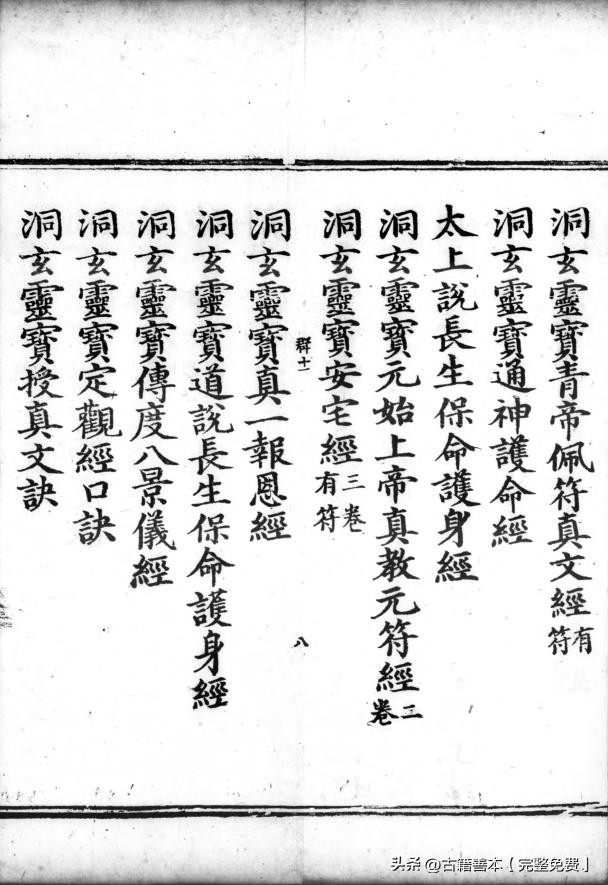 洞玄靈寶青帝佩符真文經有符
洞玄靈寶通神護命經
太上說長生保命護身經
洞玄靈寶元始上帝真教元符經二卷
洞玄靈寶安宅經三卷有符
群十一
八
洞玄靈寶真一報恩經
洞玄靈寶道說長生保命護身經
洞玄靈寶傳度八景儀經
洞玄靈寶定觀經口訣
洞玄靈寶授真文訣
头条 @古籍善本【完整免费】